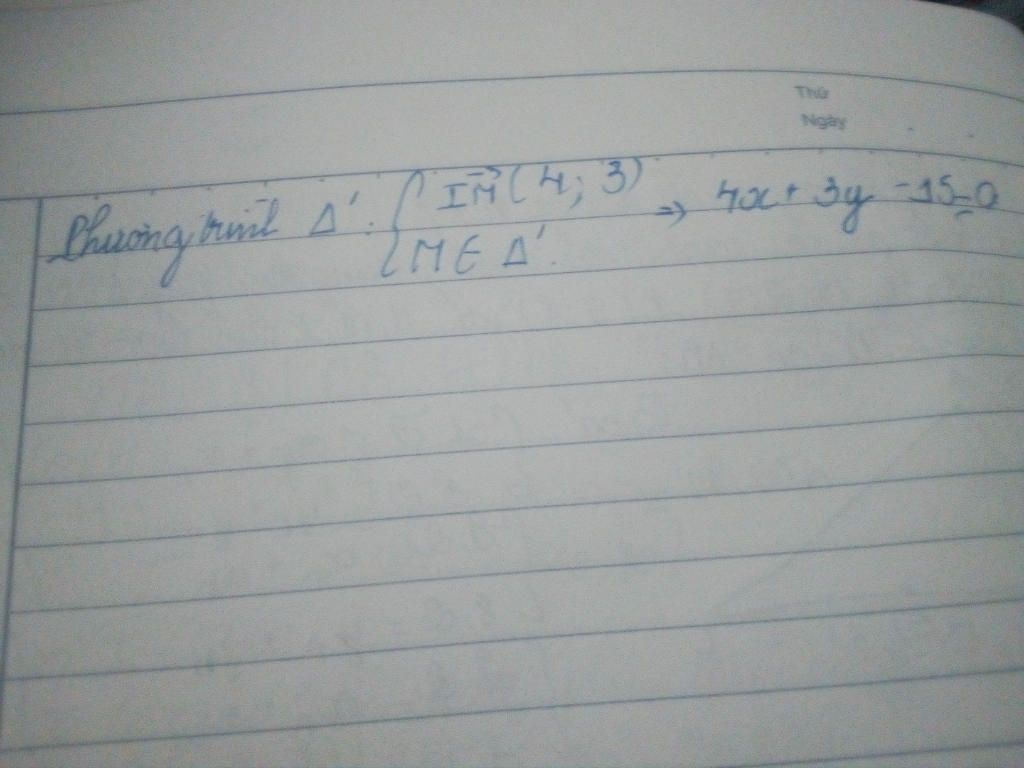 Thứ
Ngày
Phương trình Δ' : { IM→ (4; 3)
M ∈ Δ'.
⇒ 4x + 3y - 15 = 0